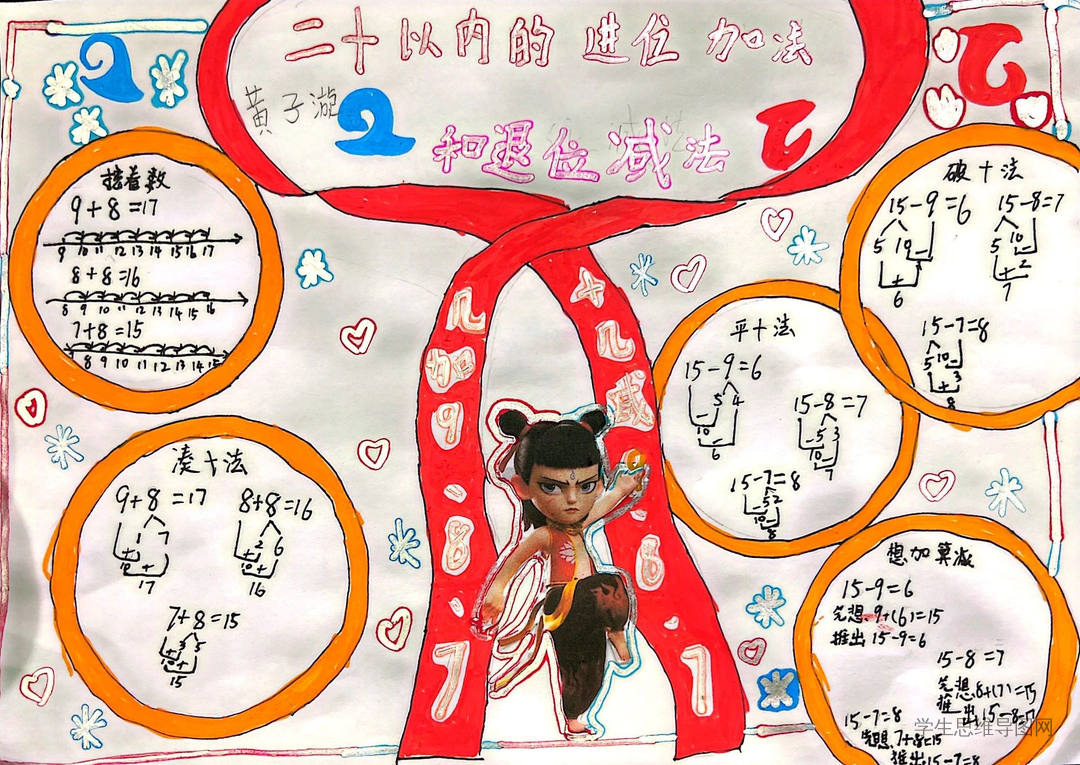 二十以内的进位加法
黄子漩
和退位减法
接着数
9+8=17
9 10 11 12 13 14 15 16 17
8+8=16
8 9 10 11 12 13 14 15 16
7+8=15
7 8 9 10 11 12 13 14 15
凑十法
9+8=17
1 7
10
17
8+8=16
2 6
10
16
7+8=15
3 5
10
15
几加9、8、7
十几减
8
7
平十法
15-9=6
5 4
10
6
15-8=7
5 3
10
7
15-7=8
5 2
10
8
破十法
15-9=6
5 10
6
15-8=7
5 10
2
7
15-7=8
5 10
3
8
想加算减
15-9=6
先想 9+(6)=15
推出 15-9=6
15-8=7
先想 8+(7)=15
推出 15-8=7
15-7=8
先想 7+8=15
推出 15-7=8
学生思维导图网